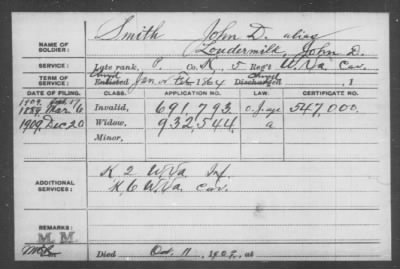 Smith John D. alias
NAME OF SOLDIER: Loudermilk, John D.
SERVICE: Late rank, P. Co. K, 5 Reg't W. Va. Cav.
TERM OF SERVICE: Enlisted Jan or Feb 1864 Discharged , 1
DATE OF FILING. CLASS. APPLICATION NO. LAW. CERTIFICATE NO.
1889 Mar 6 Invalid, 691,793. 547,000.
1909 Dec 20 Widow, 932,544. a
Minor,
ADDITIONAL SERVICES: K 2 W.Va. Inf.
K, 6 W.Va. Cav.
REMARKS:
M. M.
Died Oct. 11, 1909, at